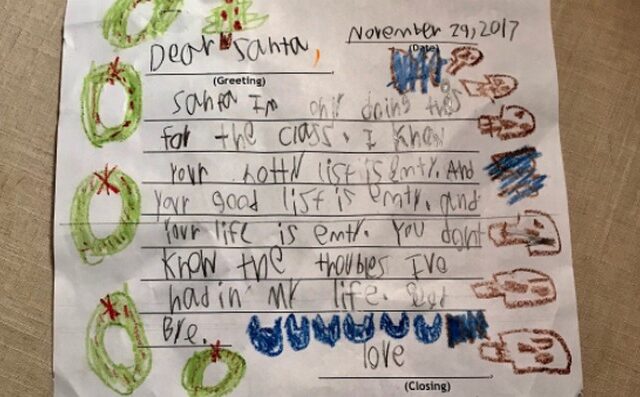 November 29, 2017
(Date)
Dear Santa,
(Greeting)
Santa Im only doing this
for the class. I Know
Your notty list is Emty. And
your good list is emty. and
Your life is emty. You dont
Know the troubles Ive
had in my life. Good
Bye.
love
(Closing)